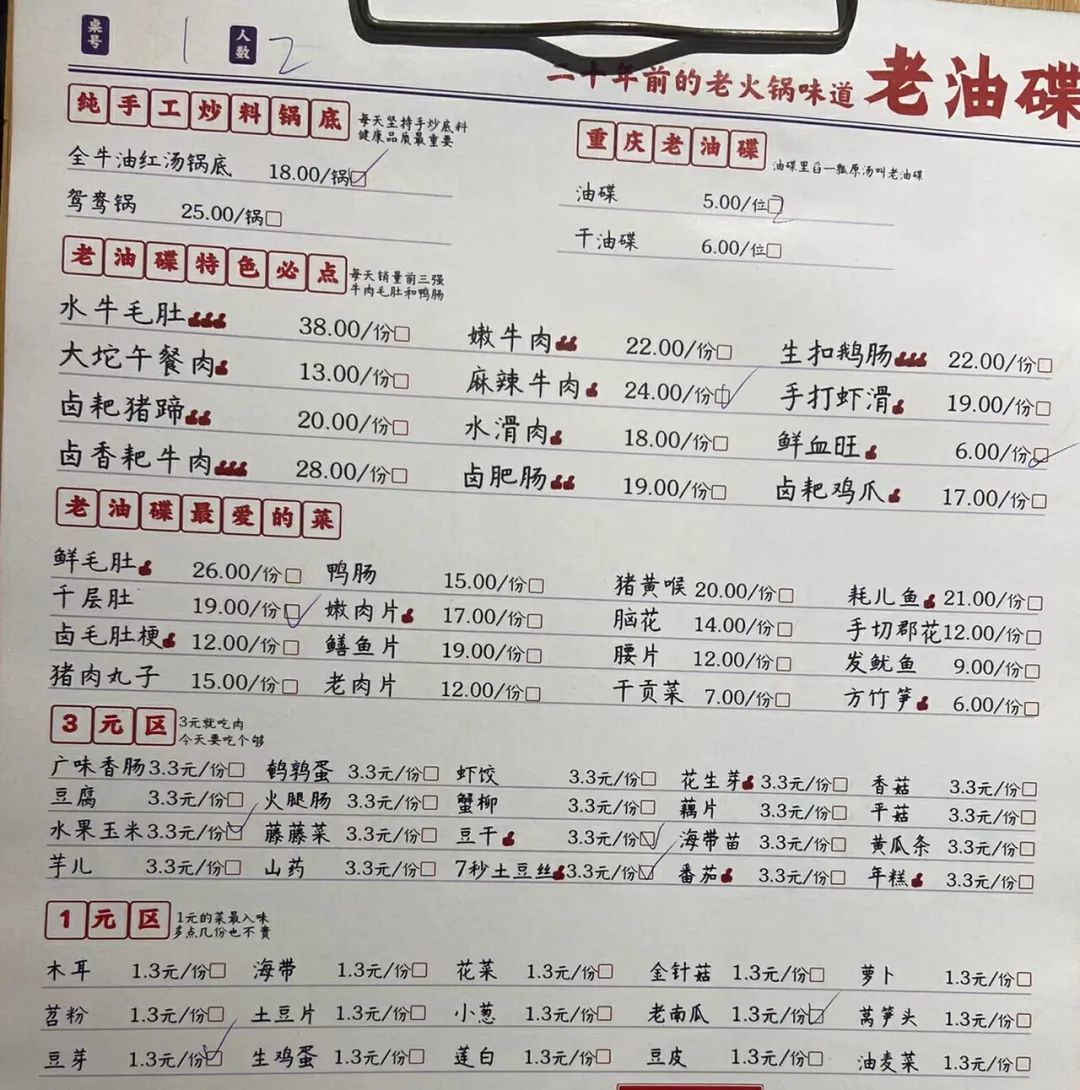 桌号 1 人数 2
二十年前的老火锅味道 老油碟
纯手工炒料锅底 每天坚持手炒底料
健康品质最重要
全牛油红汤锅底 18.00/锅
鸳鸯锅 25.00/锅
重庆老油碟 油碟里舀一瓢原汤叫老油碟
油碟 5.00/位 2
干油碟 6.00/位
老油碟特色必点 每天销量前三强
牛肉毛肚和鸭肠
水牛毛肚 38.00/份 嫩牛肉 22.00/份 生扣鹅肠 22.00/份
大坨午餐肉 13.00/份 麻辣牛肉 24.00/份 手打虾滑 19.00/份
卤耙猪蹄 20.00/份 水滑肉 18.00/份 鲜血旺 6.00/份
卤香耙牛肉 28.00/份 卤肥肠 19.00/份 卤耙鸡爪 17.00/份
老油碟最爱的菜
鲜毛肚 26.00/份 鸭肠 15.00/份 猪黄喉 20.00/份 耗儿鱼 21.00/份
千层肚 19.00/份 嫩肉片 17.00/份 脑花 14.00/份 手切郡花 12.00/份
卤毛肚梗 12.00/份 鳝鱼片 19.00/份 腰片 12.00/份 发鱿鱼 9.00/份
猪肉丸子 15.00/份 老肉片 12.00/份 干贡菜 7.00/份 方竹笋 6.00/份
3元区 3元就吃肉
今天要吃个够
广味香肠 3.3元/份 鹌鹑蛋 3.3元/份 虾饺 3.3元/份 花生芽 3.3元/份 香菇 3.3元/份
豆腐 3.3元/份 火腿肠 3.3元/份 蟹柳 3.3元/份 藕片 3.3元/份 平菇 3.3元/份
水果玉米 3.3元/份 藤藤菜 3.3元/份 豆干 3.3元/份 海带苗 3.3元/份 黄瓜条 3.3元/份
芋儿 3.3元/份 山药 3.3元/份 7秒土豆丝 3.3元/份 番茄 3.3元/份 年糕 3.3元/份
1元区 1元的菜最入味
多点几份也不贵
木耳 1.3元/份 海带 1.3元/份 花菜 1.3元/份 金针菇 1.3元/份 萝卜 1.3元/份
苕粉 1.3元/份 土豆片 1.3元/份 小葱 1.3元/份 老南瓜 1.3元/份 莴笋头 1.3元/份
豆芽 1.3元/份 生鸡蛋 1.3元/份 莲白 1.3元/份 豆皮 1.3元/份 油麦菜 1.3元/份